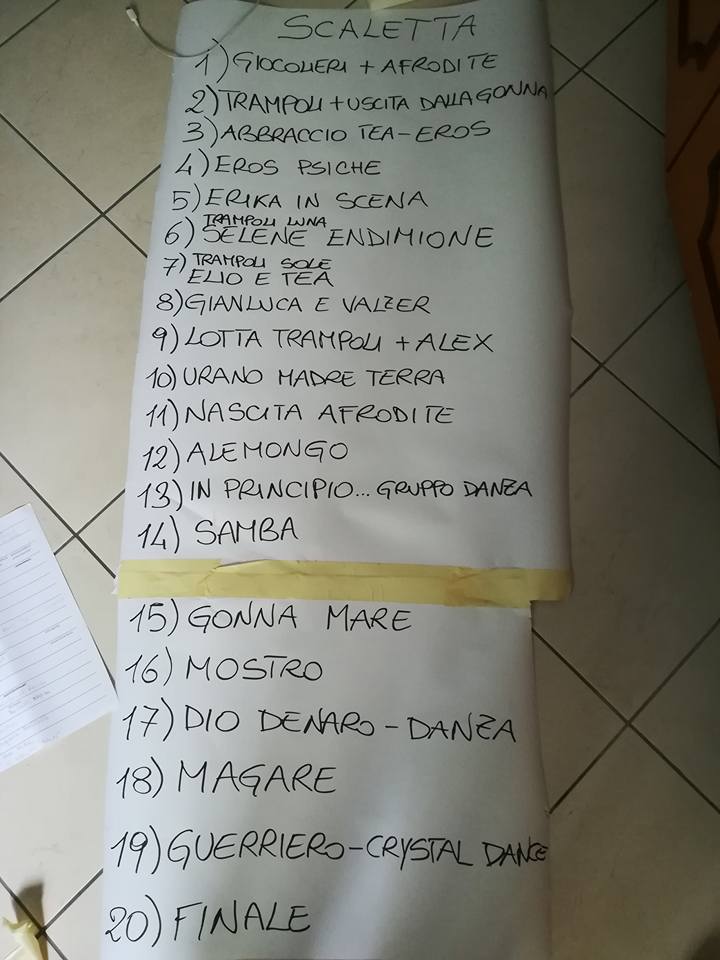 SCALETTA
1) GIOCOLIERI + AFRODITE
2) TRAMPOLI + USCITA DALLA GONNA
3) ABBRACCIO TEA-EROS
4) EROS PSICHE
5) ERIKA IN SCENA
TRAMPOLI LUNA
6) SELENE ENDIMIONE
7) TRAMPOLI SOLE
ELIO E TEA
8) GIANLUCA E VALZER
9) LOTTA TRAMPOLI + ALEX
10) URANO MADRE TERRA
11) NASCITA AFRODITE
12) ALEMONGO
13) IN PRINCIPIO... GRUPPO DANZA
14) SAMBA
15) GONNA MARE
16) MOSTRO
17) DIO DENARO - DANZA
18) MAGARE
19) GUERRIERO - CRYSTAL DANCE
20) FINALE